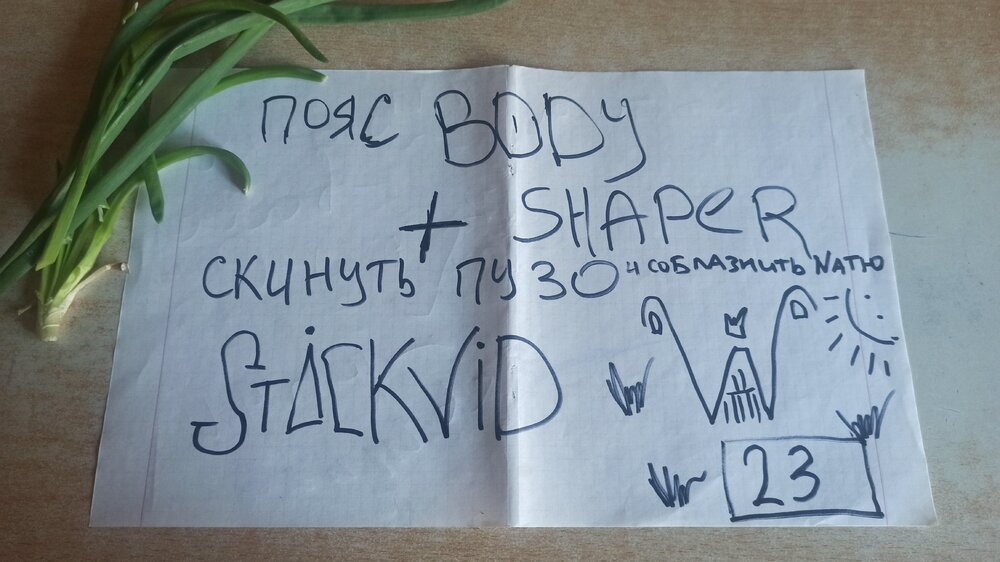 ПОЯС BODY
+ SHAPER
СКИНУТЬ ПУЗО И СОБЛАЗНИТЬ NATЮ
STACKViD W
23